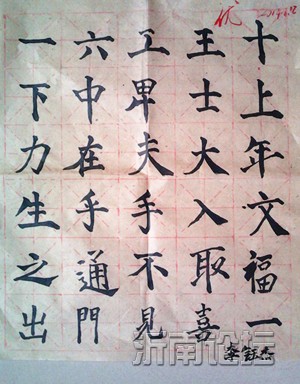 优
十上年文福一
王士大入取喜
工早夫手不見
六中在乎通門
一下力生之出
李
沂南论坛